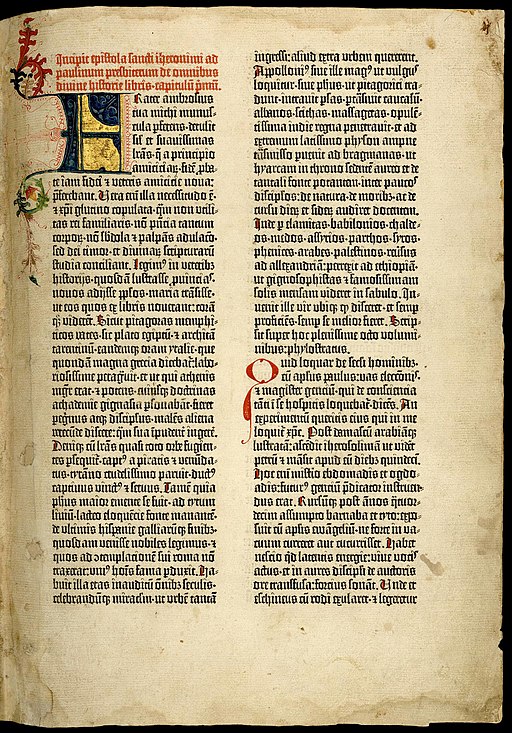 Incipit epistola sancti iheronimi ad
paulinum presbiterum de omnibus
divine historie libris. capitulũ pmũ.
Frater ambrosius
tua michi munus-
cula pferens. detulit
sil et suavissimas
lrãs. q̃ a principio
amiciciaꝝ. fidē pba-
te iam fidei ⁊ veteris amicicie noua:
pferebant. Vera eni illa necessitudo ē.
⁊ xpi glutino copulata. qm non vtili-
tas rei familiaris. nō pncia tantum
corporꝝ. nō sbdola ⁊ palpãs adulacō.
sed dei timor. et diuinaꝝ scripturarū
studia conciliant. Legimꝰ in veteribꝫ
historijs. quosdã lustrasse puincias.
nouos adijsse pplos. maria trãsisse.
ut eos quos ex libris nouerant: corã
qꝫ viderēt. Sicut pitagoras memphi-
ticos vates. sic plato egiptū. ⁊ architã
tarentinū. eandemqꝫ oram ytalie. que
quondã magna grecia dicebat: labo-
riosissime peragᵛit. et ut qui athenis
mgr̃ erat. ⁊ potens. cuiusqꝫ doctrinas
achademie gignasia psonabãt. fieret
pegrinus atqꝫ discipulus. malēs aliena
verecūde discere: qm̃ sua ipudent̃ ingere.
Deniqꝫ cū lrãs quasi toto orbe fugien-
tes psequit̃. captꝰ a piratis ⁊ venūda-
tus. tyrãno crudelissimo paruit. ductꝰ
captiuus vinctꝰ ⁊ seruus. Tamē quia
phus maior emente se fuit. ad tytum
liuiū. lacteo eloquēcie fonte manantē.
de ultimis hispanie galliarūqꝫ finibꝫ.
quosdam venisse nobiles legimus.
quos ad ɔtemplacionē sui roma nō
traxerat: vnꝰ hoīs fama pduxit. Ha-
buit illa etas inauditū oĩbꝫ seculis.
celebrandūqꝫ miraclm. ut vrbē tantã
ingressi: aliud extra vrbem quererent.
Apolloniꝰ siue ille magꝰ ut vulgꝰ
loquitur. siue phus. ut pitagorici tra-
dunt. intrauit psas. ptrãsiuit caucasū.
albanos. scithas. massagetas. opulē-
tissima indie regna penetrauit. et ad
extremum latissimo physon ampne
trãsmisso puenit ad bragmanas. ut
hyarcam in throno sedentē aureo. et de
tantali fonte potantem. inter paucos
discipulos. de natura. de moribꝫ. ac de
cursu dierꝫ et siderꝫ audiret docentem.
Inde p elamitas. babilonios. chalde-
os. medos. assyrios. parthos. syros.
phenices. arabes. palestinos. reuersus
ad allexandriã: perrexit ad ethiopiã.
ut gignosophistas ⁊ famosissimam
solis mensam videret in sabulo. In-
uenit ille vir vbiqꝫ qd̃ disceret. et semp
proficiēs. semp se melior fieret. Scrip-
sit super hoc plenissime octo volumi-
nibus: phylostratus.
Quid loquar de seculi hominibꝫ.
cū apłus paulus: vas electiōis.
⁊ magister genciū. qui de consciencia
tãti ī se hospitis loquebat̃. dicēs. An
experimentū queritis eius qui in me
loquit̃ xpc. Post damascū arabiãqꝫ
lustratã: ascēdit iherosolimã ut videret
petrū ⁊ mãsit apud eū diebꝫ quindeci.
Hoc eni misterio ebdomadis et ogdo-
adis: futurꝰ genciū pdicator instruen-
dus erat. Rursūqꝫ post ãnos ꝗtuor-
decim assumpto barnaba et tyto: expo-
suit cū aplis euangeliū. ne forte in va-
cuum curreret aut cucurrisset. Habet
nescio qd̃ latentis energie: viue vocis
actus. et in aures discipli de auctoris
ore transfusa: forcius sonat. Vnde et
eschineus cū rodi exularet. ⁊ legeretur